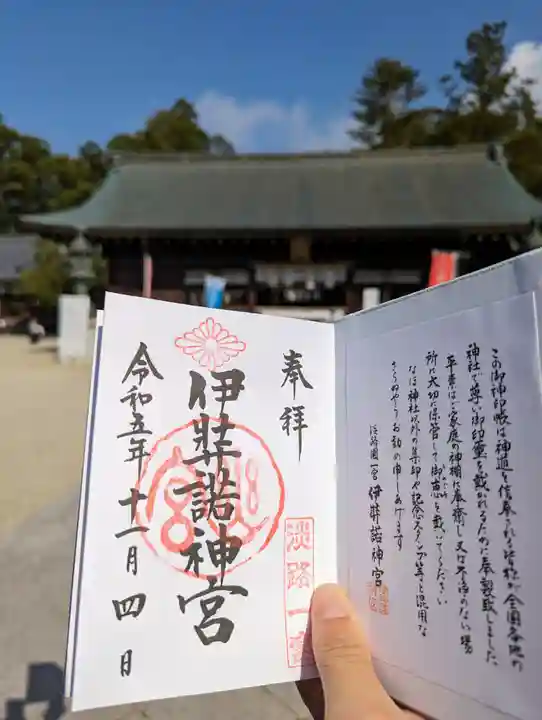 この御神印帳は神道を信奉される皆様が全国各地の
神社で尊い御印璽を戴かれるために奉製致しました
平素はご家庭の神棚に奉斎し又は不浄のない場
所に大切に保管して御神恵を戴いてください
なほ神社以外の集印や記念スタンプ等と混用な
さらぬやうお勧め申しあげます
淡路國一宮 伊弉諾神宮
奉拝
淡路一宮
伊弉諾神宮
令和五年十一月四日